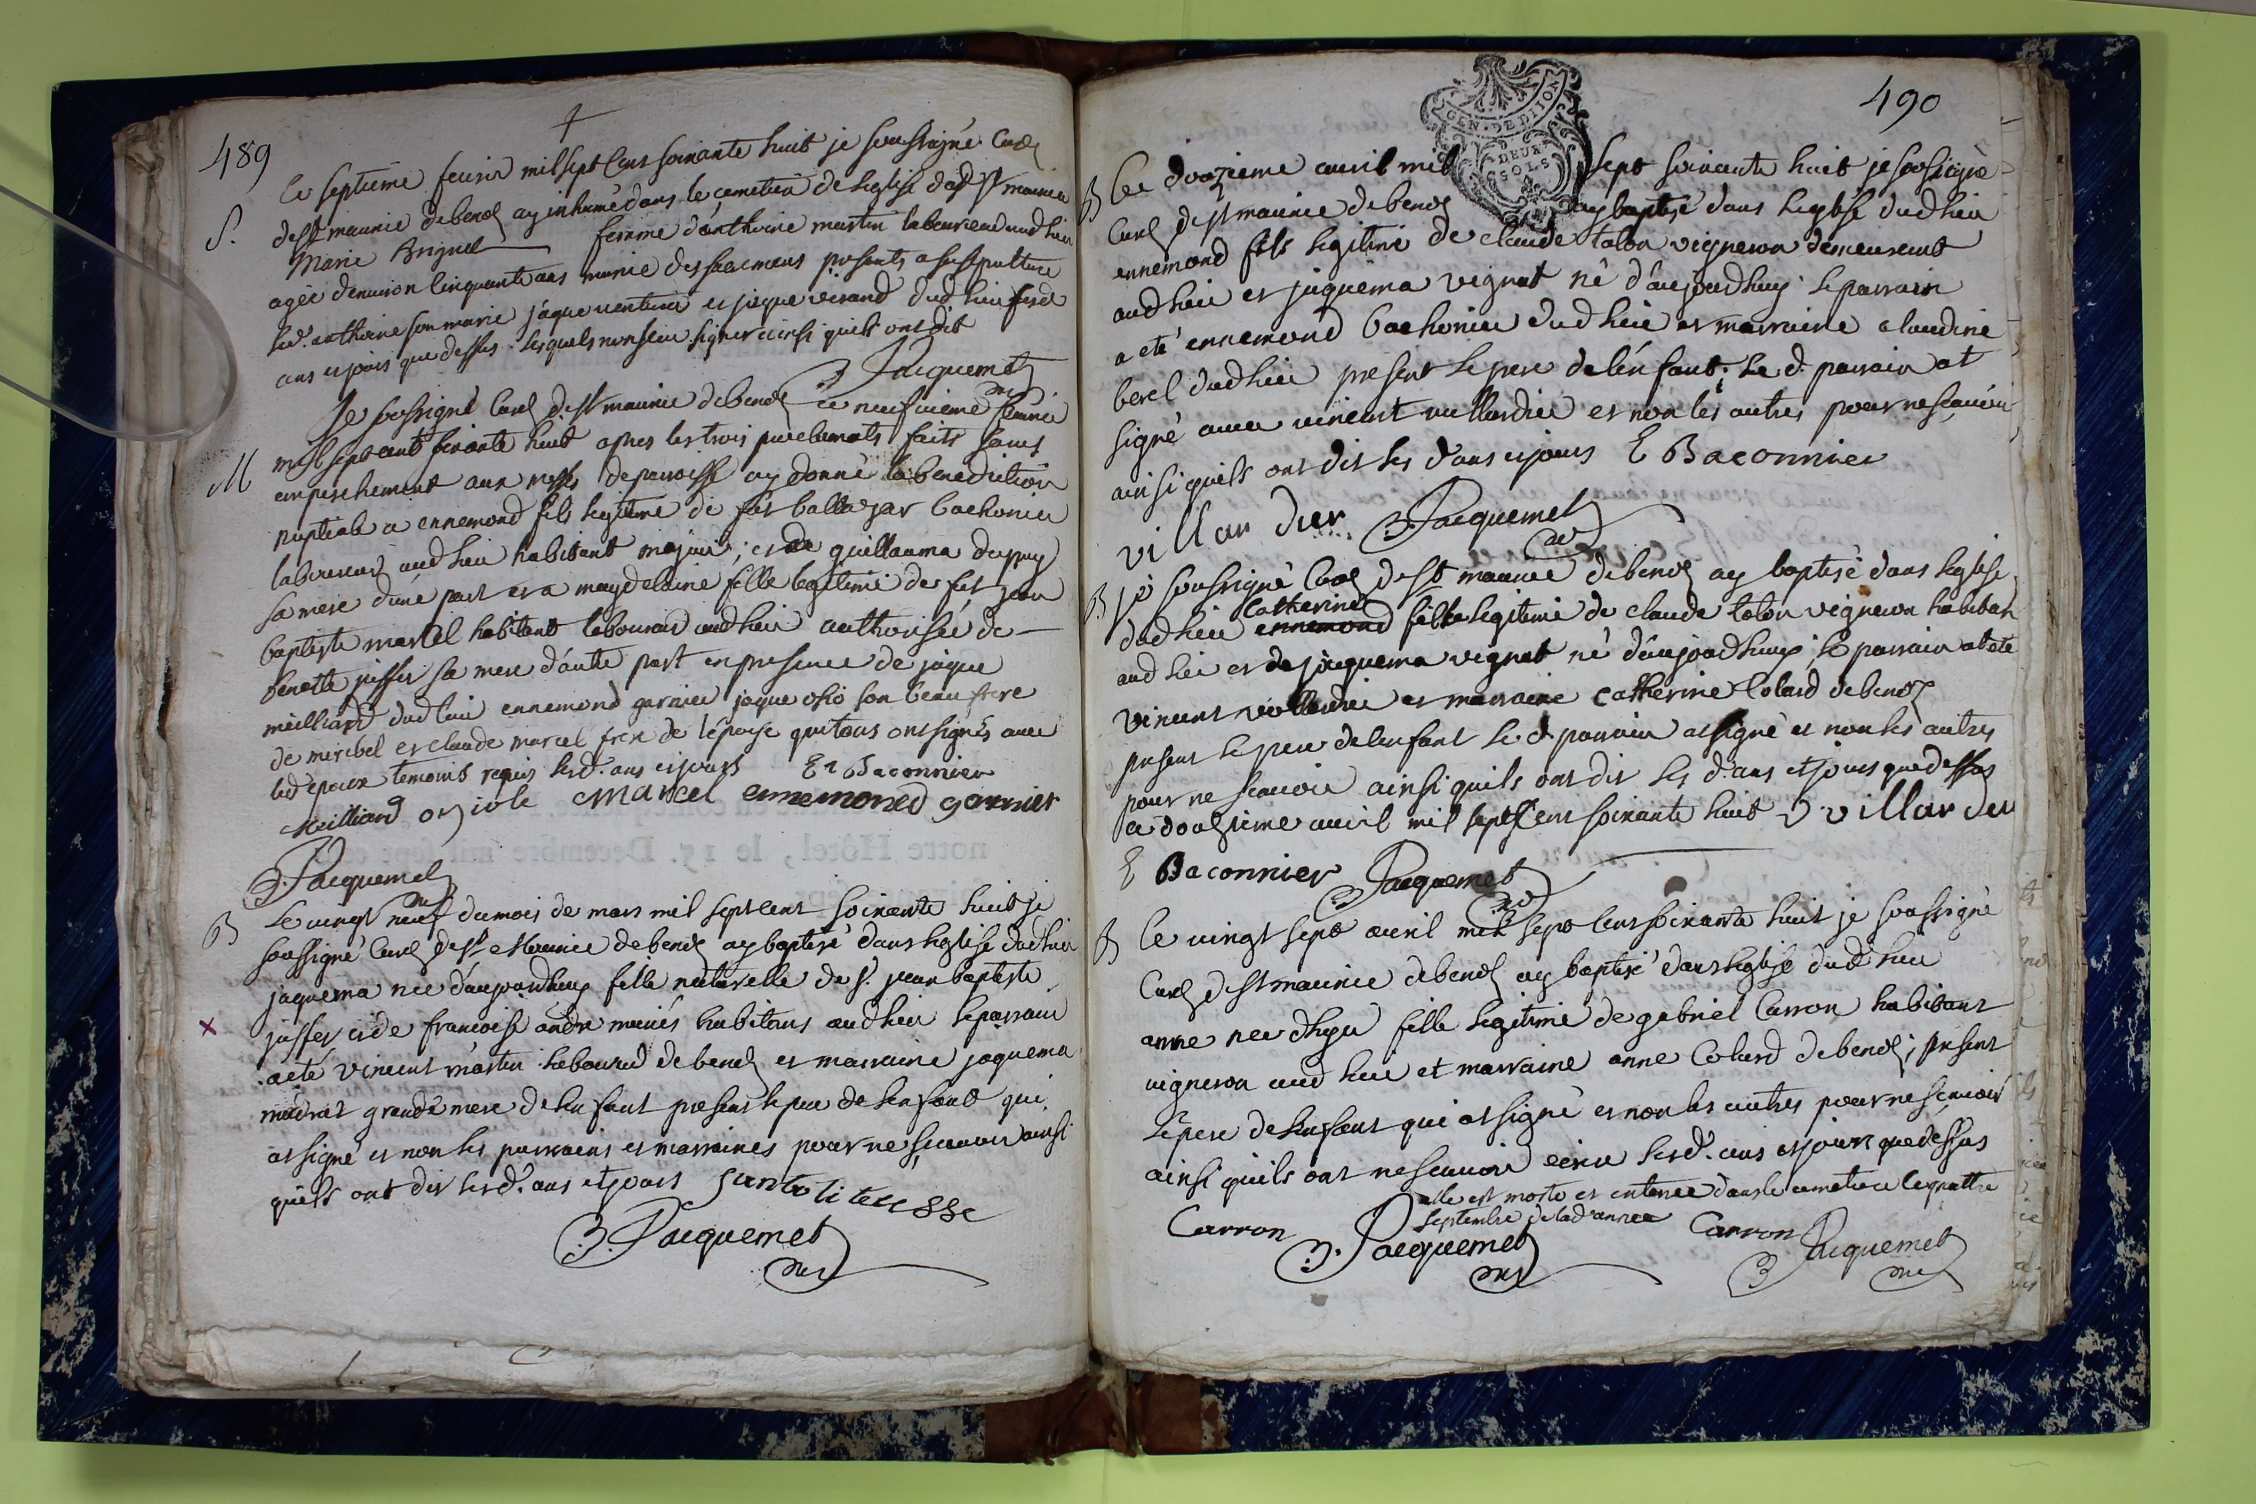 489
S.
Ce septieme fevrier mil sept cent soixante huit je soussigné Curé
de St maurice de benol ay inhumé dans le cemetiere de leglise dud St maurice
Marie Brignol femme d'anthoine martin laboureur aud lieu
agée d'environ cinquante ans munie des sacremens presents a sa sepulture
led. anthoine son marie jaque venture et jaque verand dud lieu
ans et jours que dessus. lesquels non sceu signer ainsi quils ont dit
B. Jacquemet
M
Je sossigné Curé de St maurice de benol ce neufvieme fevrier
mil sept cent soixante huit apres les trois proclamats faits sans
empeschement aux messes de paroisse ay donné la benediction
nuptiale a ennemond fils legitime de feu baltazar bachonier
laboureur aud lieu habitant majeur; et de guillauma dupuy
sa mere d'une part et a magdelaine fille legitime de feu jean
baptiste marcel habitant laboureur aud lieu authorisée de
benette juffer sa mere d'autre part en presence de jaque
meilliard dud lieu ennemond garnier jaque son beau frere
de miribel et claude marcel frere de l'epouse qui tous ont signés avec
led epoux temoins requis lesd. ans et jours En Baconnier
Meilliard CMarcel ennemoned garnier
B. Jacquemet
B
Le vingt neuf du mois de mars mil sept cent soixante huit je
soussigné Curé de St Maurice de benol ay baptisé dans leglise dud lieu
jaquema née d'aujourdhuy fille naturelle de S. jean baptiste
juffer et de francoise andre mariés habitans aud lieu le parrain
a eté vincent martin laboureur de benol et marraine jaquema
grande mere de lenfant present le pere de lenfant qui
at signé et non les parrains et marraines pour ne scavoir ainsi
quils ont dit lesd. ans et jours
B. Jacquemet
490
GEN. DE DIJON
DEUX SOLS
B
Ce douzieme avril mil sept soixante huit je sossigné
Curé de St maurice de benol ay baptisé dans leglise dud lieu
ennemond fils legitime de claude tolon vigneron demeurant
aud lieu et jaquema vignat né d'aujourdhuy le parrain
a eté ennemond bachonier dud lieu et marraine claudine
berel dud lieu present le pere de lénfant; le d. parrain at
signé avec vincent vullardier et non les autres pour ne scavoir
ainsi quils ont dit les d ans et jours E Baconnier
villar dier B. Jacquemet
B
je soussigné Curé de St maurice de benol ay baptisé dans leglise
dud lieu ennemond catherine fille legitime de claude tolon vigneron habitan
aud lieu et de jaquema vignat né d'aujourdhuy; le parrain at ete
vincent vullardier et marraine catherine Colard de benol
present le pere de lenfant le d parrain at signé et non les autres
pour ne scavoir ainsi quils ont dit les d. ans et jours que dessus
ce douzieme avril mil sept cent soixante huit v villar dier
E Baconnier B. Jacquemet
B
Ce vingt sept avril mil sept cent soixante huit je soussigné
Curé de St maurice de benol ay baptisé dans leglise dud lieu
anne née d'hyer fille legitime de gabriel Carron habitant
vigneron aud lieu et marraine anne Colard de benol; present
le pere de lenfant qui at signé et non les autres pour ne scavoir
ainsi quils ont ne scavoir ecrire lesd. ans et jours que dessus
elle est morte et enterrée dans le cemetiere le quattre
septembre de lad'année
Carron B. Jacquemet Carron B Jacquemet